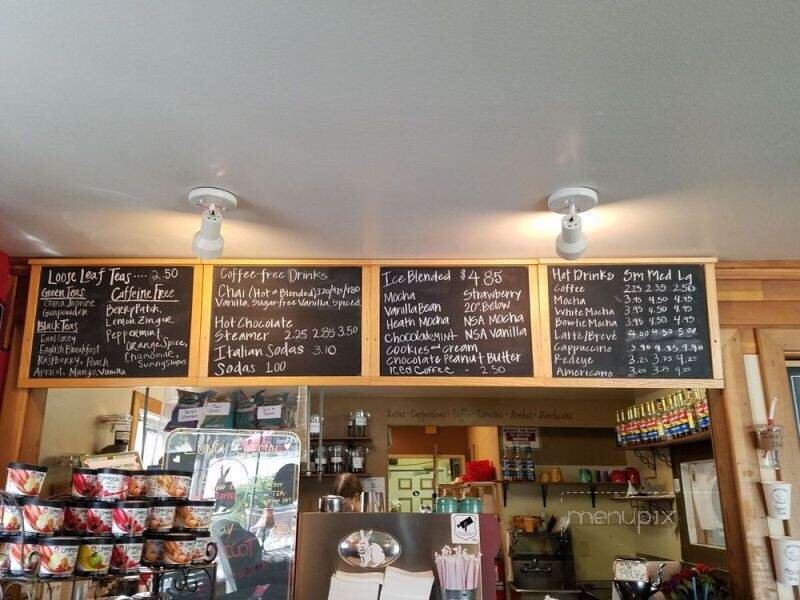 Loose Leaf Teas .... 2.50
Green Teas
China Jasmine
Gunpowder
Black Teas
Earl Grey
English Breakfast
Raspberry, Peach
Apricot, Mango, Vanilla
Caffeine Free
Berry Patch,
Lemon Zinger
Peppermint
Orange Spice,
Chamomile,
Coffee-free Drinks
Chai (Hot & Blended)
Vanilla, Sugar-free Vanilla, Spiced
Hot Chocolate
Steamer 2.25 2.85 3.50
Italian Sodas 3.10
Sodas 1.00
Ice Blended $4.85
Mocha
Vanilla Bean
Heath Mocha
Chocolate Mint
Cookies and Cream
Chocolate Peanut Butter
Iced Coffee - 2.50
Strawberry
20° Below
NSA Mocha
NSA Vanilla
Hot Drinks Sm Med Lg
Coffee 2.25 2.35 2.50
Mocha 3.95 4.50 4.95
White Mocha 3.95 4.50 4.95
Bowtie Mocha 3.95 4.50 4.95
Latte/Brevé 4.00 4.50 5.00
Cappuccino 4.85
Redeye 3.25 3.75 4.25
Americano 3.25 3.75 4.25
menupix